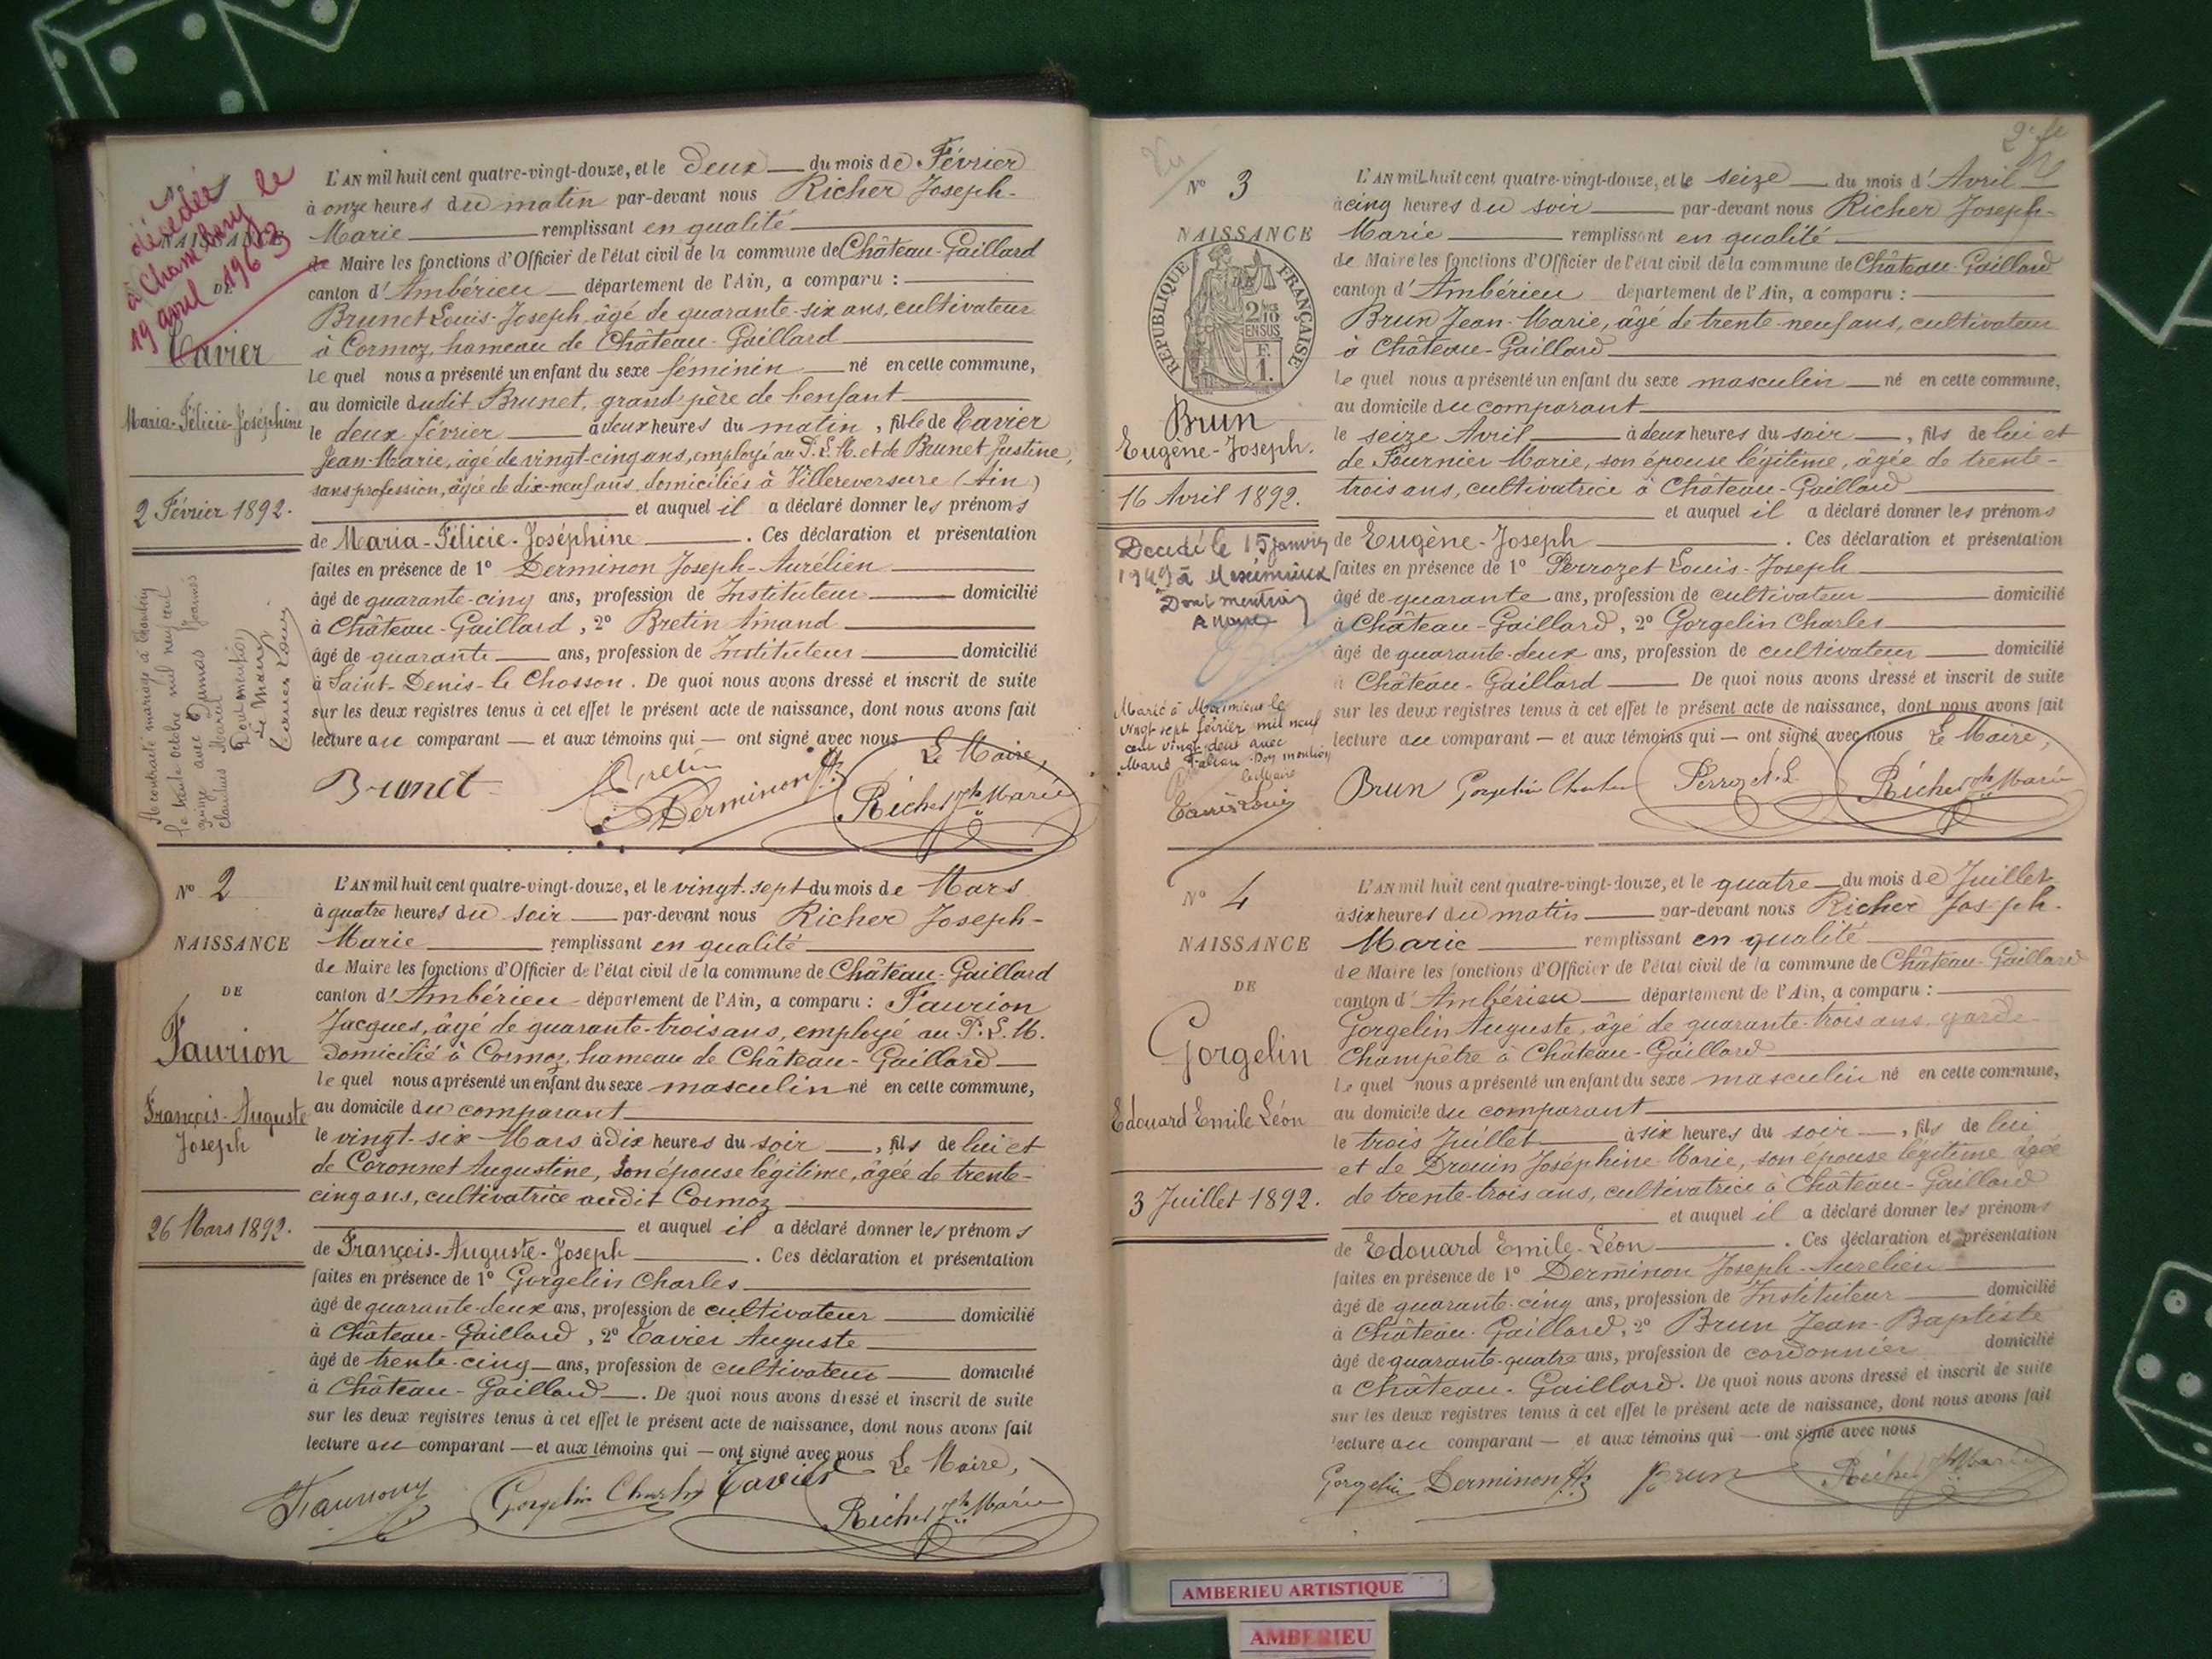 décédée
à Chambéry le
19 avril 1963
NAISSANCE
DE
Tavier
Maria-Félicie-Joséphine
2 Février 1892.
A contracté mariage à Chambéry
le trente octobre mil neuf cent
quinze avec Dumas Joannès
Claudius Marcel
Dont mention
Le Maire
L'AN mil huit cent quatre-vingt-douze, et le deux du mois de Février
à onze heures du matin par-devant nous Richer Joseph-
Marie remplissant en qualité
de Maire les fonctions d'Officier de l'état civil de la commune de Château-Gaillard
canton d'Ambérieu département de l'Ain, a comparu :
Brunet Louis-Joseph âgé de quarante-six ans, cultivateur
à Cormoz, hameau de Château-Gaillard
le quel nous a présenté un enfant du sexe féminin né en cette commune,
au domicile dudit Brunet, grand'père de l'enfant
le deux février à deux heures du matin, fille de Tavier
Jean-Marie, âgé de vingt-cinq ans, employé au P.L.M. et de Brunet Justine,
sans profession, âgée de dix-neuf ans, domiciliés à Villereversure (Ain)
et auquel il a déclaré donner les prénoms
de Maria-Félicie-Joséphine. Ces déclaration et présentation
faites en présence de 1° Derminon Joseph-Aurélien
âgé de quarante-cinq ans, profession de Instituteur domicilié
à Château-Gaillard, 2° Bretin Amand
âgé de quarante ans, profession de Instituteur domicilié
à Saint-Denis-le Chosson. De quoi nous avons dressé et inscrit de suite
sur les deux registres tenus à cet effet le présent acte de naissance, dont nous avons fait
lecture au comparant — et aux témoins qui — ont signé avec nous
Le Maire,
Brunet Bretin Derminon Richer Jh Marie
N° 2
NAISSANCE
DE
Faurion
François-Auguste
Joseph
26 Mars 1892.
L'AN mil huit cent quatre-vingt-douze, et le vingt-sept du mois de Mars
à quatre heures du soir par-devant nous Richer Joseph-
Marie remplissant en qualité
de Maire les fonctions d'Officier de l'état civil de la commune de Château-Gaillard
canton d'Ambérieu département de l'Ain, a comparu : Faurion
Jacques, âgé de quarante-trois ans, employé au P.L.M.
domicilié à Cormoz, hameau de Château-Gaillard
le quel nous a présenté un enfant du sexe masculin né en cette commune,
au domicile du comparant
le vingt-six Mars à dix heures du soir, fils de lui et
de Coronnet Augustine, son épouse légitime, âgée de trente-
cinq ans, cultivatrice audit Cormoz
et auquel il a déclaré donner les prénoms
de François-Auguste-Joseph. Ces déclaration et présentation
faites en présence de 1° Gorgelin Charles
âgé de quarante-deux ans, profession de cultivateur domicilié
à Château-Gaillard, 2° Tavier Auguste
âgé de trente-cinq ans, profession de cultivateur domicilié
à Château-Gaillard. De quoi nous avons dressé et inscrit de suite
sur les deux registres tenus à cet effet le présent acte de naissance, dont nous avons fait
lecture au comparant — et aux témoins qui — ont signé avec nous Le Maire,
Faurion Gorgelin Charles Tavier Richer Jh Marie
2e
Vu
N° 3
NAISSANCE
DE
RÉPUBLIQUE FRANÇAISE
2 10
EN SUS
F.
1.
Brun
Eugène-Joseph.
16 Avril 1892.
Décédé le 15 Janvier
1949 à Meximieux
Dont mention
Marié à Meximieux le
vingt sept février mil neuf
cent vingt-deux avec
Marie Dont mention
le Maire
L'AN mil huit cent quatre-vingt-douze, et le seize du mois d'Avril
à cinq heures du soir par-devant nous Richer Joseph-
Marie remplissant en qualité
de Maire les fonctions d'Officier de l'état civil de la commune de Château-Gaillard
canton d'Ambérieu département de l'Ain, a comparu :
Brun Jean-Marie, âgé de trente-neuf ans, cultivateur
à Château-Gaillard
le quel nous a présenté un enfant du sexe masculin né en cette commune,
au domicile du comparant
le seize Avril à deux heures du soir, fils de lui et
de Fournier Marie, son épouse légitime, âgée de trente-
trois ans, cultivatrice à Château-Gaillard
et auquel il a déclaré donner les prénoms
de Eugène-Joseph. Ces déclaration et présentation
faites en présence de 1° Perrozet Louis-Joseph
âgé de quarante ans, profession de cultivateur domicilié
à Château-Gaillard, 2° Gorgelin Charles
âgé de quarante-deux ans, profession de cultivateur domicilié
à Château-Gaillard De quoi nous avons dressé et inscrit de suite
sur les deux registres tenus à cet effet le présent acte de naissance, dont nous avons fait
lecture au comparant — et aux témoins qui — ont signé avec nous Le Maire,
Brun Gorgelin Charles Perrozet L. Richer Jh Marie
N° 4
NAISSANCE
DE
Gorgelin
Edouard Emile Léon
3 Juillet 1892.
L'AN mil huit cent quatre-vingt-douze, et le quatre du mois de Juillet
à six heures du matin par-devant nous Richer Joseph-
Marie remplissant en qualité
de Maire les fonctions d'Officier de l'état civil de la commune de Château-Gaillard
canton d'Ambérieu département de l'Ain, a comparu :
Gorgelin Auguste, âgé de quarante-trois ans, garde
Champêtre à Château-Gaillard
le quel nous a présenté un enfant du sexe masculin né en cette commune,
au domicile du comparant
le trois Juillet à six heures du soir, fils de lui
et de Drouin Joséphine-Marie, son épouse légitime âgée
de trente-trois ans, cultivatrice à Château-Gaillard
et auquel il a déclaré donner les prénoms
de Edouard Emile-Léon. Ces déclaration et présentation
faites en présence de 1° Derminon Joseph-Aurélien
âgé de quarante-cinq ans, profession de Instituteur domicilié
à Château-Gaillard, 2° Brun Jean-Baptiste
âgé de quarante-quatre ans, profession de cordonnier domicilié
à Château-Gaillard. De quoi nous avons dressé et inscrit de suite
sur les deux registres tenus à cet effet le présent acte de naissance, dont nous avons fait
lecture au comparant — et aux témoins qui — ont signé avec nous
Gorgelin Derminon Brun Richer Jh Marie
AMBERIEU ARTISTIQUE
AMBERIEU